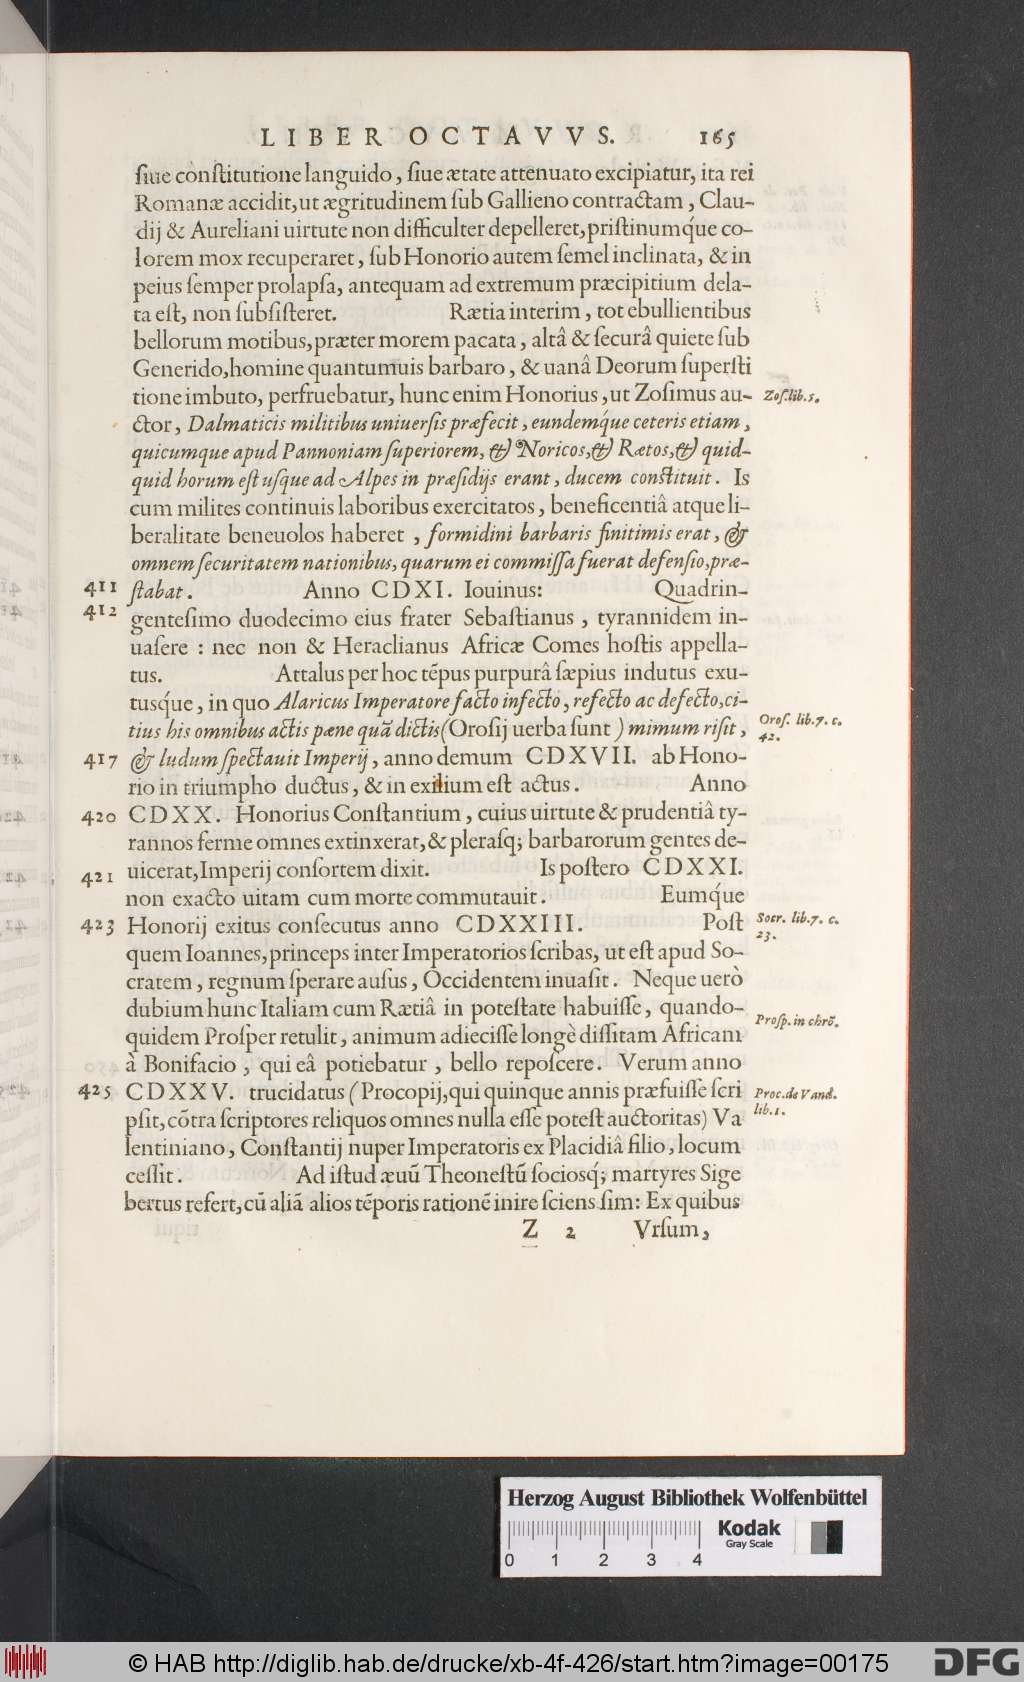 LIBER OCTAVVS. 165
ſiue conſtitutione languido, ſiue ætate attenuato excipiatur, ita rei
Romanæ accidit, ut ægritudinem ſub Gallieno contractam, Clau-
dij & Aureliani uirtute non difficulter depelleret, priſtinumq́ue co-
lorem mox recuperaret, ſub Honorio autem ſemel inclinata, & in
peius ſemper prolapſa, antequam ad extremum præcipitium dela-
ta eſt, non ſubſiſteret. Rætia interim, tot ebullientibus
bellorum motibus, præter morem pacata, altâ & ſecurâ quiete ſub
Generido, homine quantumuis barbaro, & uanâ Deorum ſuperſti
tione imbuto, perfruebatur, hunc enim Honorius, ut Zoſimus au- Zoſ. lib. 5.
ctor, Dalmaticis militibus uniuerſis præfecit, eundemq́ue ceteris etiam,
quicumque apud Pannoniam ſuperiorem, & Noricos, & Rætos, & quid-
quid horum eſt uſque ad Alpes in præſidijs erant, ducem conſtituit. Is
cum milites continuis laboribus exercitatos, beneficentiâ atque li-
beralitate beneuolos haberet, formidini barbaris finitimis erat, &
omnem ſecuritatem nationibus, quarum ei commiſſa fuerat defenſio, præ-
411 ſtabat. Anno CDXI. Iouinus: Quadrin-
412 genteſimo duodecimo eius frater Sebaſtianus, tyrannidem in-
uaſere: nec non & Heraclianus Africæ Comes hoſtis appella-
tus. Attalus per hoc tẽpus purpurâ ſæpius indutus exu-
tusq́ue, in quo Alaricus Imperatore facto infecto, refecto ac defecto, ci-
tius his omnibus actis pæne quã dictis (Oroſij uerba ſunt) mimum riſit, Oroſ. lib. 7. c.
42.
417 & ludum ſpectauit Imperij, anno demum CDXVII. ab Hono-
rio in triumpho ductus, & in exilium eſt actus. Anno
420 CDXX. Honorius Conſtantium, cuius uirtute & prudentiâ ty-
rannos ferme omnes extinxerat, & pleraſq; barbarorum gentes de-
421 uicerat, Imperij conſortem dixit. Is poſtero CDXXI.
non exacto uitam cum morte commutauit. Eumq́ue
423 Honorij exitus conſecutus anno CDXXIII. Poſt Socr. lib. 7. c.
23.
quem Ioannes, princeps inter Imperatorios ſcribas, ut eſt apud So-
cratem, regnum ſperare auſus, Occidentem inuaſit. Neque uerò
dubium hunc Italiam cum Rætiâ in poteſtate habuiſſe, quando-
quidem Proſper retulit, animum adieciſſe longè diſſitam Africam Proſp. in chrõ.
à Bonifacio, qui eâ potiebatur, bello repoſcere. Verum anno
425 CDXXV. trucidatus (Procopij, qui quinque annis præfuiſſe ſcri Proc. de Vand.
lib. 1.
pſit, cõtra ſcriptores reliquos omnes nulla eſſe poteſt auctoritas) Va
lentiniano, Conſtantij nuper Imperatoris ex Placidiâ filio, locum
ceſſit. Ad iſtud æuũ Theoneſtũ ſociosq́; martyres Sige
bertus refert, cũ aliã alios tẽporis rationẽ inire ſciens ſim: Ex quibus
Z 2 Vrſum,
Herzog August Bibliothek Wolfenbüttel
Kodak
Gray Scale
0 1 2 3 4
© HAB http://diglib.hab.de/drucke/xb-4f-426/start.htm?image=00175
DFG